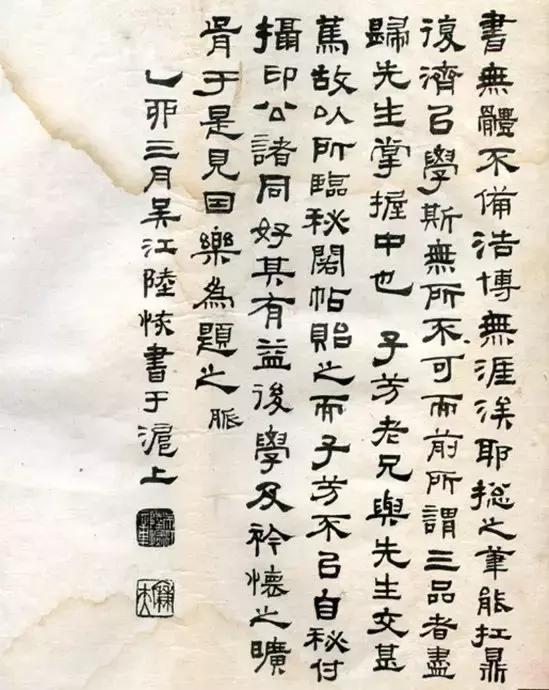 書無體不備浩博無涯涘耶揔之筆能扛鼎
復濟㠯學斯無所不可而前所謂三品者盡
歸先生掌握中也 子芳老兄與先生交甚
篤故以所臨秘閣帖貽之而子芳不㠯自秘付
攝印公諸同好其有益後學及衿懷之曠
胥于是見因樂為題之 脈
乙卯三月吳江陸恢書于滬上